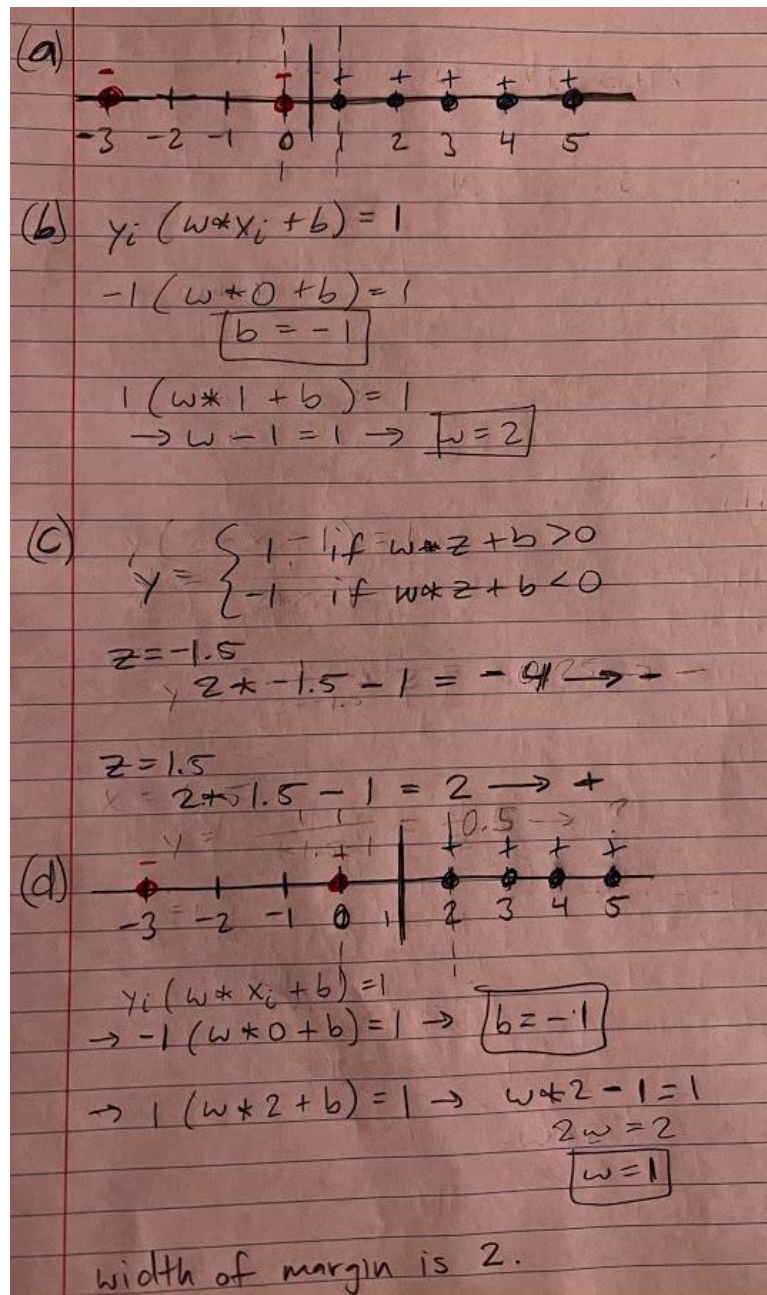 (a)
- - + + + + +
-3 -2 -1 0 1 2 3 4 5
(b) yi (w*xi + b) = 1
-1 (w*0 + b) = 1
b = -1
1 (w*1 + b) = 1
→ w - 1 = 1 → w = 2
(c) y = { 1 if w*z + b > 0
-1 if w*z + b < 0
z = -1.5
2* -1.5 - 1 = -4 → -
z = 1.5
2* 1.5 - 1 = 2 → +
0.5 → ?
(d)
- + + + + +
-3 -2 -1 0 1 2 3 4 5
yi (w* xi + b) = 1
→ -1 (w*0 + b) = 1 → b = -1
→ 1 (w*2 + b) = 1 → w*2 - 1 = 1
2w = 2
w = 1
width of margin is 2.